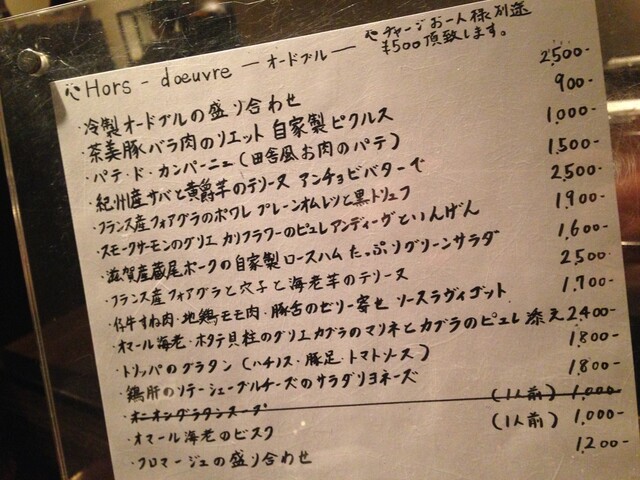 Hors-doeuvre ―オードブル― チャージお一人様別途
¥500頂致します。
・冷製オードブルの盛り合わせ 2,500-
・茶美豚バラ肉のリエット 自家製ピクルス 900-
・パテ・ド・カンパーニュ(田舎風お肉のパテ) 1,000-
・紀州産サバと黄爵芋のテリーヌ アンチョビバターで 1,500-
・フランス産フォアグラのポワレ プレーンオムレツと黒トリュフ 2,500-
・スモークサーモンのグリエ カリフラワーのピュレ アンディーヴといんげん 1,900-
・滋賀産蔵尾ポークの自家製ロースハム たっぷりグリーンサラダ 1,600-
・フランス産フォアグラと穴子と海老芋のテリーヌ 2,500-
・仔牛すね肉・地鶏モモ肉・豚舌のゼリー寄せ ソースラヴィゴット 1,700-
・オマール海老・ホタテ貝柱のグリエ カブラのマリネとカブラのピュレ添え 2400-
・トリッパのグラタン(ハチノス・豚足・トマトソース) 1,800-
・鶏肝のソテー シェーブルチーズのサラダリヨネーズ 1,800-
・オニオングラタンスープ (1人前) 1,000-
・オマール海老のビスク (1人前) 1,000-
・フロマージュの盛り合わせ 1,200-